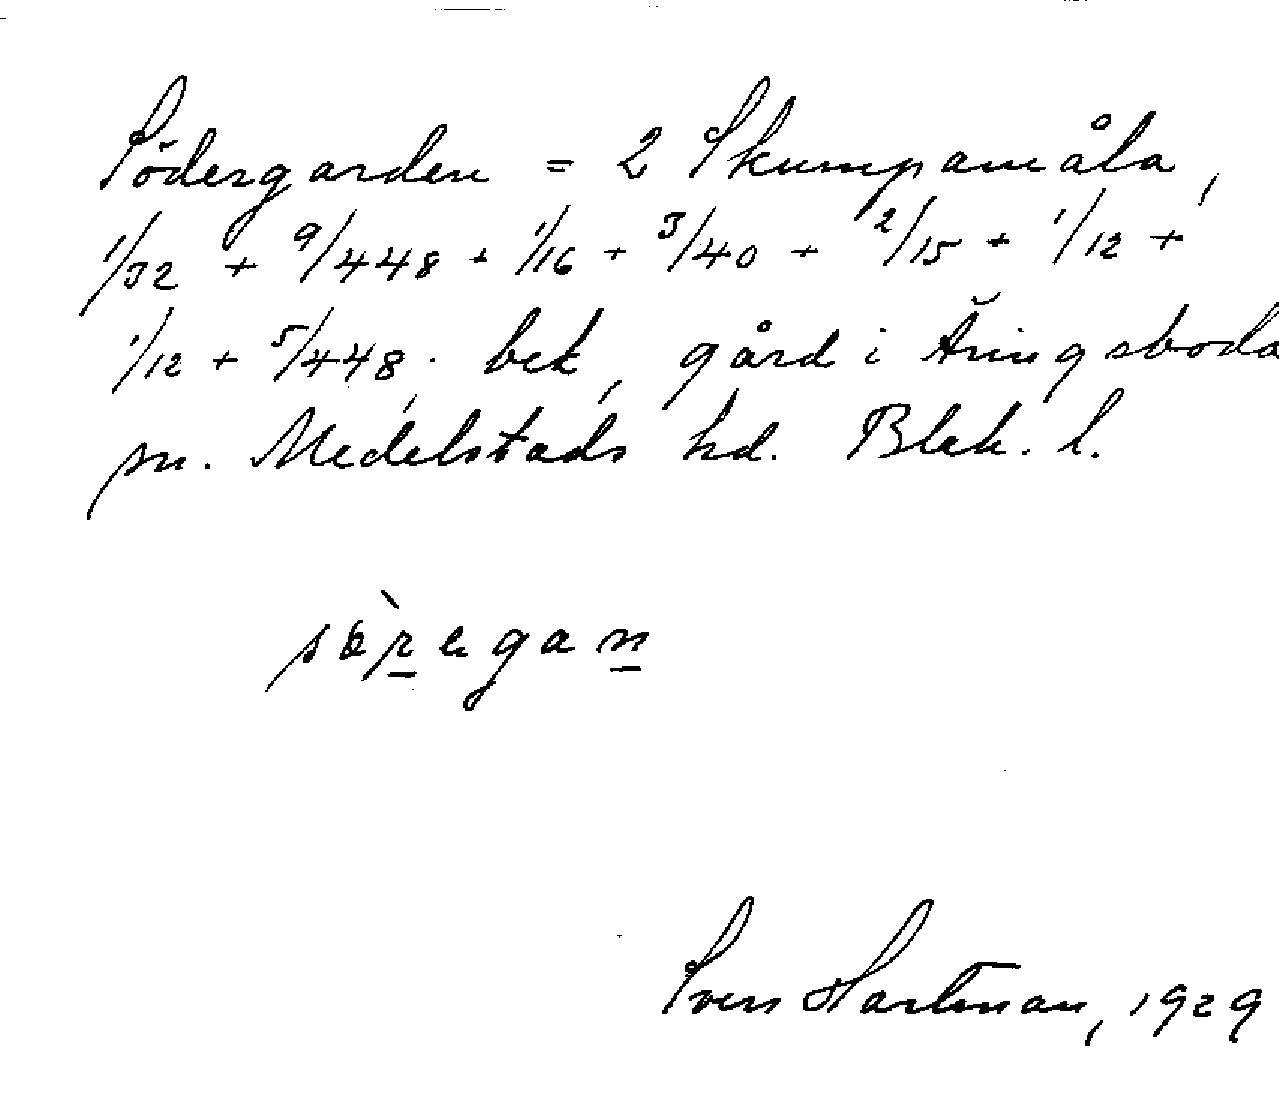 Södergarden = 2 Skumpamåla,
1/32 + 9/448 + 1/16 + 3/40 + 2/15 + 1/12 +
1/12 + 5/448, bek, gård i Äringsboda
sn. Medelstads hd. Blek. l.
Sven Hartman, 1929